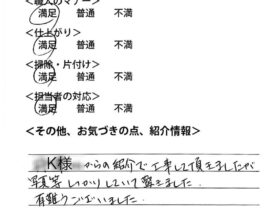 <職人のマナー>
満足 普通 不満
<仕上がり>
満足 普通 不満
<掃除・片付け>
満足 普通 不満
<担当者の対応>
満足 普通 不満
<その他、お気づきの点、紹介情報>
K様からの紹介で工事して頂きましたが
写真等しっかりしていて驚きました。
有難うございました。